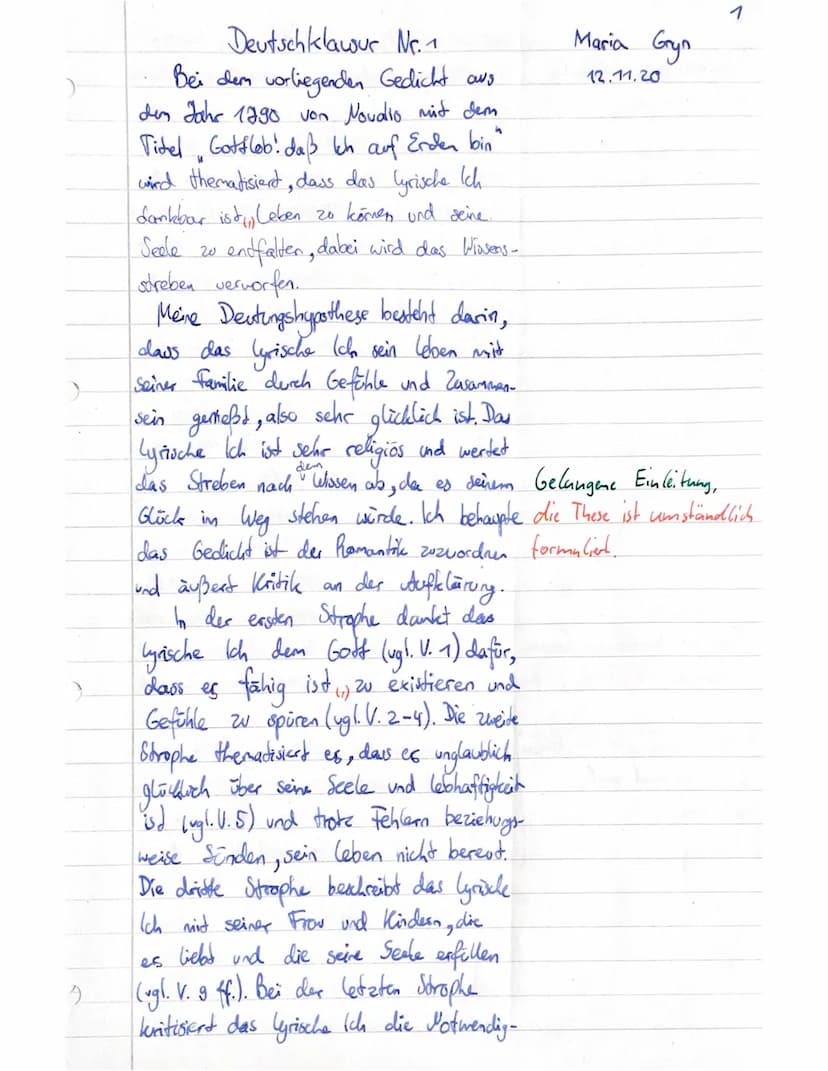 1
Deutschklausur Nr. 1 Maria Gryn
12.11.20
Bei dem vorliegenden Gedicht aus
dem Jahr 1790 von Novalis mit dem
Titel „Gottlob! daß Ich auf Erden bin"
wird thematisiert, dass das lyrische Ich
dankbar ist(,) Leben zu können und seine
Seele zu entfalten, dabei wird das Wissens-
streben verworfen.
Meine Deutungshypothese besteht darin,
dass das lyrische Ich sein Leben mit
seiner Familie durch Gefühle und Zusammen-
sein genießt, also sehr glücklich ist. Das
lyrische Ich ist sehr religiös und wertet
das Streben nach dem Wissen ab, da es seinem Gelungene Einleitung,
Glück im Weg stehen würde. Ich behaupte die These ist umständlich
das Gedicht ist der Romantik zuzuordnen formuliert.
und äußert Kritik an der Aufklärung.
In der ersten Strophe dankt das
lyrische Ich dem Gott (vgl. V. 1) dafür,
dass es fähig ist(,) zu existieren und
Gefühle zu spüren (vgl. V. 2-4). Die zweite
Strophe thematisiert es, dass es unglaublich
glücklich über seine Seele und lebhaftigkeit
ist (vgl. V. 5) und trotz Fehlern beziehungs-
weise Sünden, sein Leben nicht bereut.
Die dritte Strophe beschreibt das lyrische
Ich mit seiner Frau und Kindern, die
es liebt und die seine Seele erfüllen
(vgl. V. 9 ff.). Bei der letzten Strophe
kritisiert das lyrische Ich die Notwendig-